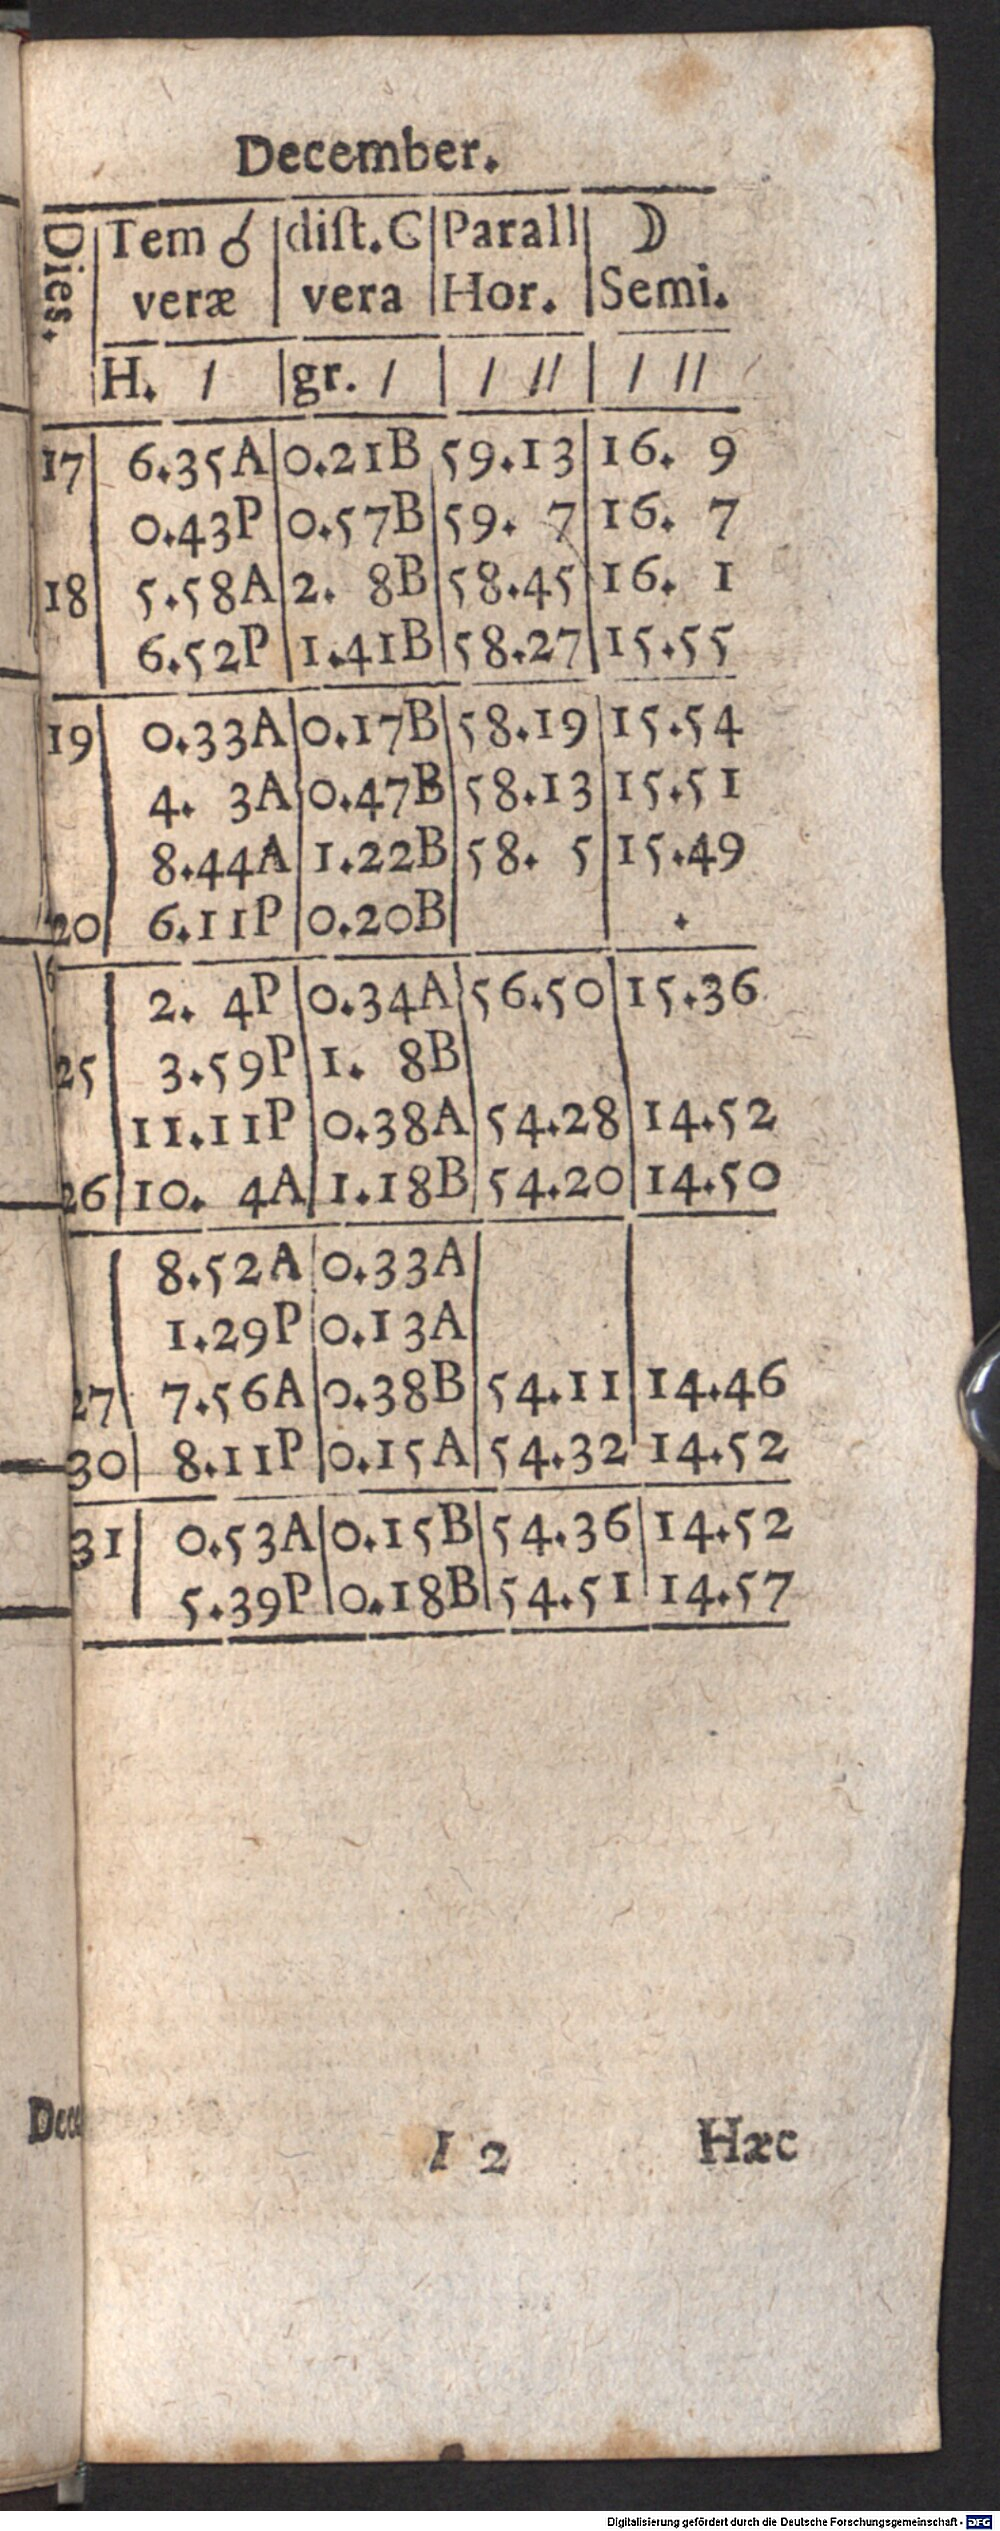 December.
Dies. Tem ☌ diſt. C Parall ☽
veræ vera Hor. Semi.
H. / gr. / / // / //
17 6.35A 0.21B 59.13 16. 9
0.43P 0.57B 59. 7 16. 7
18 5.58A 2. 8B 58.45 16. 1
6.52P 1.41B 58.27 15.55
19 0.33A 0.17B 58.19 15.54
4. 3A 0.47B 58.13 15.51
8.44A 1.22B 58. 5 15.49
20 6.11P 0.20B .
2. 4P 0.34A 56.50 15.36
25 3.59P 1. 8B
11.11P 0.38A 54.28 14.52
26 10. 4A 1.18B 54.20 14.50
8.52A 0.33A
1.29P 0.13A
27 7.56A 0.38B 54.11 14.46
30 8.11P 0.15A 54.32 14.52
31 0.53A 0.15B 54.36 14.52
5.39P 0.18B 54.51 14.57
I 2 Hæc
Digitalisierung gefördert durch die Deutsche Forschungsgemeinschaft - DFG